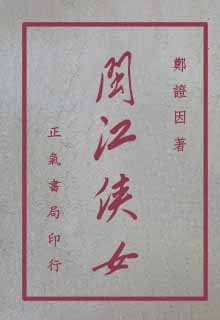 鄭證因著
閩江俠女
正氣書局印行